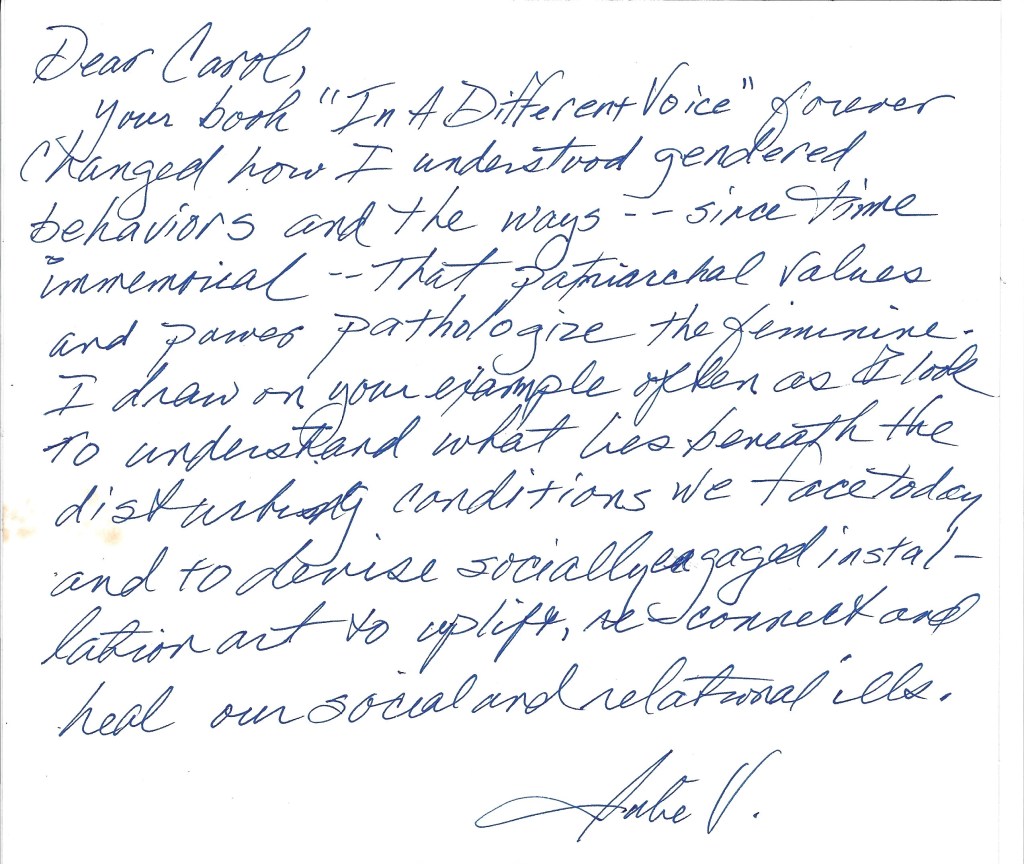 Dear Carol,
Your book "In A Different Voice" forever
changed how I understood gendered
behaviors and the ways -- since time
immemorial -- that patriarchal values
and power pathologize the feminine.
I draw on your example often as I look
to understand what lies beneath the
disturbing conditions we face today
and to devise socially engaged instal-
lation art to uplift, re-connect and
heal our social and relational ills.
V.